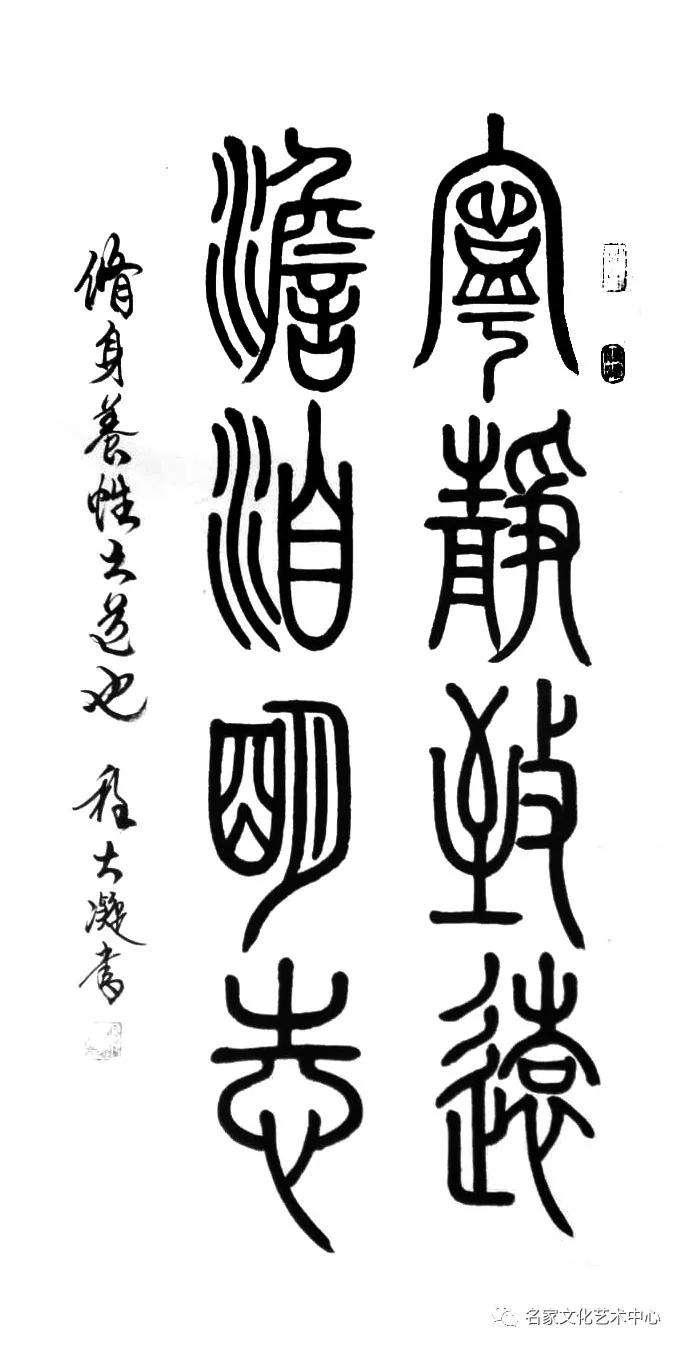 寧靜致遠
澹泊明志
脩身養性大道也 程大凝書
名家文化艺术中心